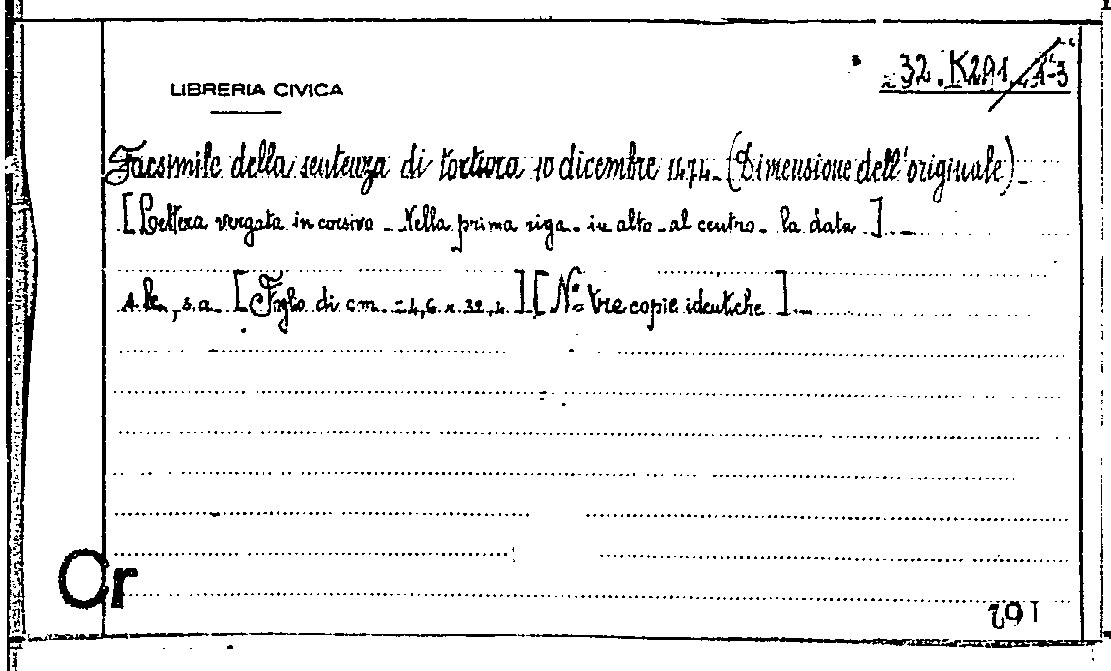 32.K291.1-3
LIBRERIA CIVICA
Facsimile della sentenza di tortura 10 dicembre 1474-(Dimensione dell'originale)-
[Lettera vergata in corsivo - Nella prima riga - in alto - al centro - la data ].-
s.a. [Foglio di cm. ] [N° tre copie identiche ].-
Cr